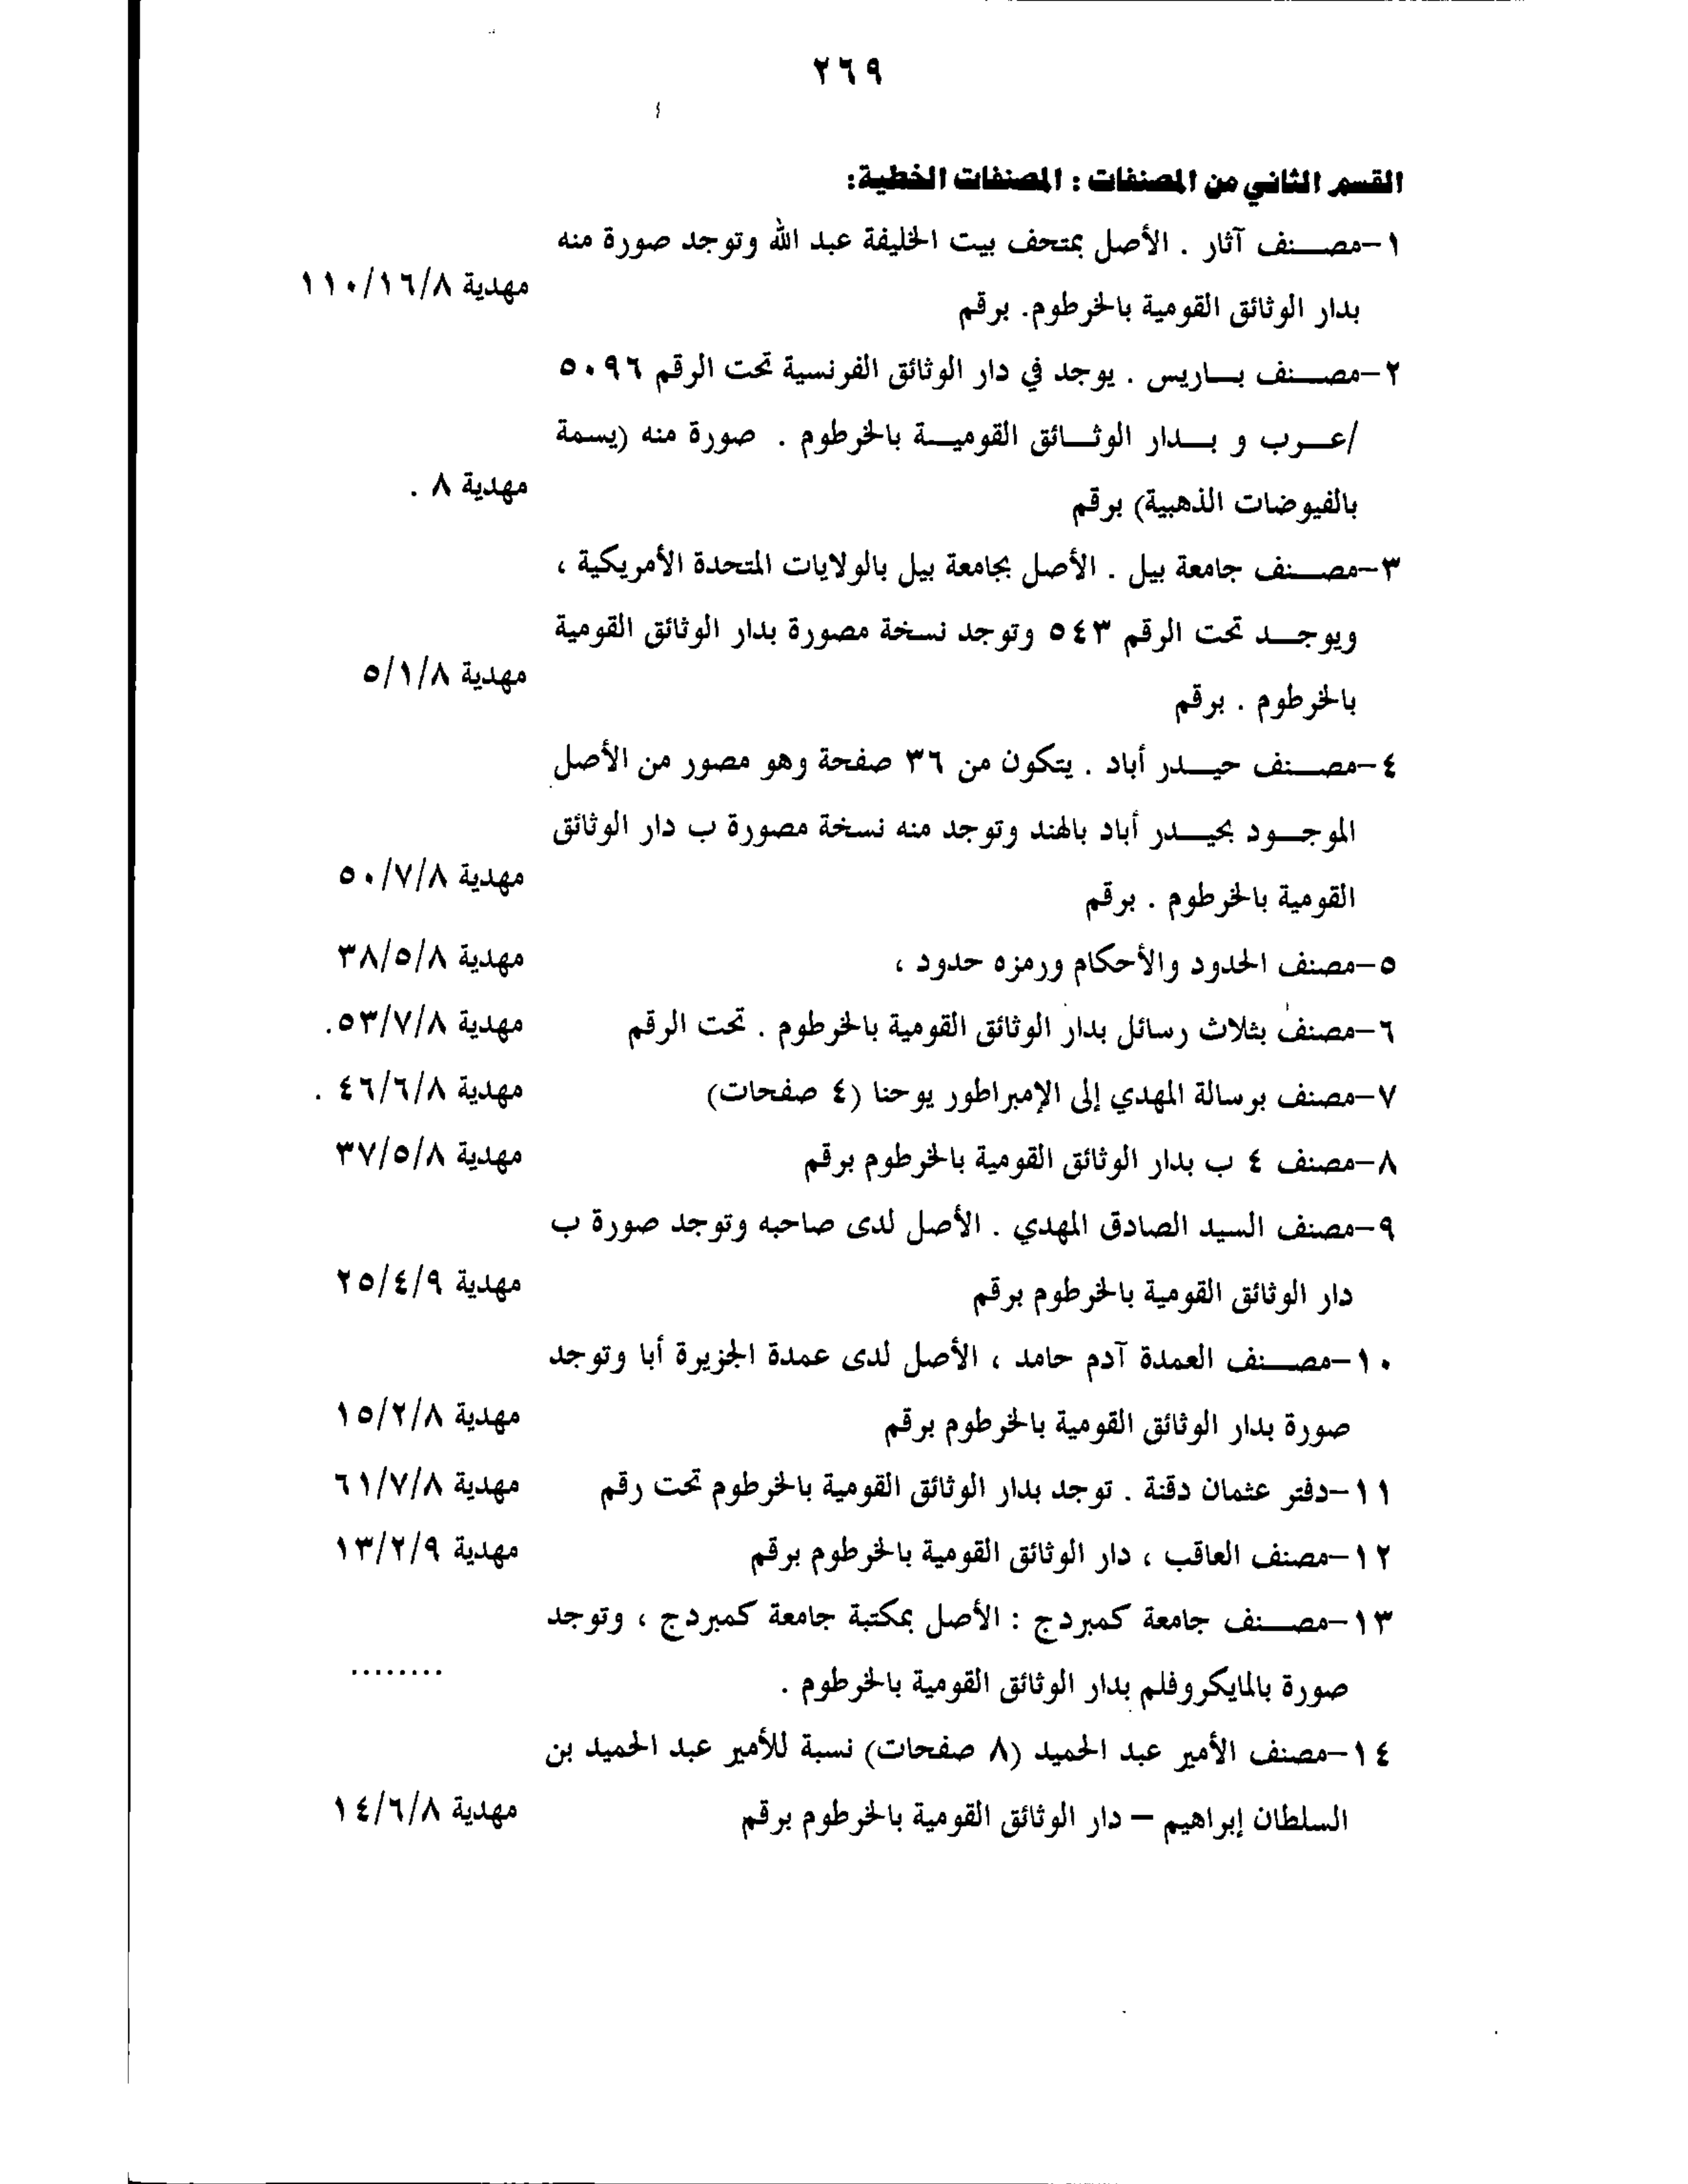 ٢٦٩
القسم الثاني من المصنفات : المصنفات الخطية:
١-مصنف آثار . الأصل بمتحف بيت الخليفة عبد الله وتوجد صورة منه
بدار الوثائق القومية بالخرطوم. برقم
مهدية ١١٠/١٦/٨
٢-مصنف باريس . يوجد في دار الوثائق الفرنسية تحت الرقم ٥٠٩٦
/عرب و بدار الوثائق القومية بالخرطوم . صورة منه (يسمة
بالفيوضات الذهبية) برقم
مهدية ٨ .
٣-مصنف جامعة بيل . الأصل بجامعة بيل بالولايات المتحدة الأمريكية ،
ويوجد تحت الرقم ٥٤٣ وتوجد نسخة مصورة بدار الوثائق القومية
بالخرطوم . برقم
مهدية ٥/١/٨
٤-مصنف حيدر أباد . يتكون من ٣٦ صفحة وهو مصور من الأصل
الموجود بحيدر أباد بالهند وتوجد منه نسخة مصورة ب دار الوثائق
القومية بالخرطوم . برقم
مهدية ٥٠/٧/٨
٥-مصنف الحدود والأحكام ورمزه حدود ، مهدية ٣٨/٥/٨
٦-مصنف بثلاث رسائل بدار الوثائق القومية بالخرطوم . تحت الرقم مهدية ٥٣/٧/٨.
٧-مصنف برسالة المهدي إلى الإمبراطور يوحنا (٤ صفحات) مهدية ٤٦/٦/٨ .
٨-مصنف ٤ ب بدار الوثائق القومية بالخرطوم برقم مهدية ٣٧/٥/٨
٩-مصنف السيد الصادق المهدي . الأصل لدى صاحبه وتوجد صورة ب
دار الوثائق القومية بالخرطوم برقم مهدية ٢٥/٤/٩
١٠-مصنف العمدة آدم حامد ، الأصل لدى عمدة الجزيرة أبا وتوجد
صورة بدار الوثائق القومية بالخرطوم برقم مهدية ١٥/٢/٨
١١-دفتر عثمان دقنة . توجد بدار الوثائق القومية بالخرطوم تحت رقم مهدية ٦١/٧/٨
١٢-مصنف العاقب ، دار الوثائق القومية بالخرطوم برقم مهدية ١٣/٢/٩
١٣-مصنف جامعة كمبردج : الأصل بمكتبة جامعة كمبردج ، وتوجد
صورة بالمايكروفلم بدار الوثائق القومية بالخرطوم . ........
١٤-مصنف الأمير عبد الحميد (٨ صفحات) نسبة للأمير عبد الحميد بن
السلطان إبراهيم – دار الوثائق القومية بالخرطوم برقم مهدية ١٤/٦/٨